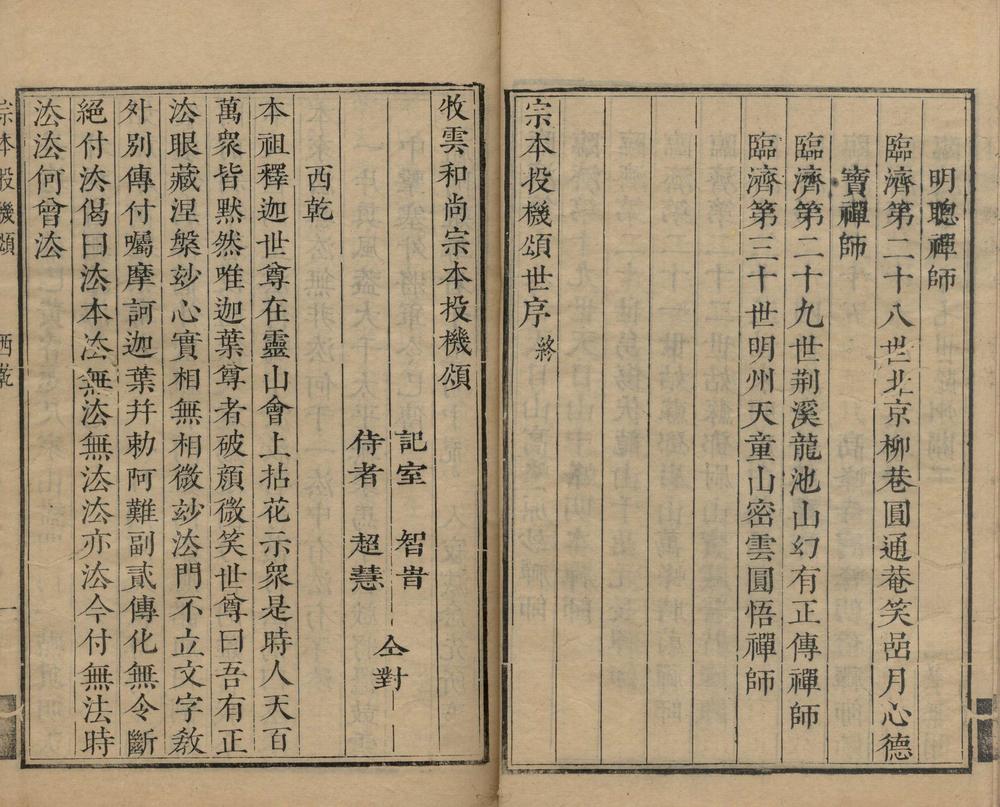 明聰禪師
臨濟第二十八世北京柳巷圓通菴笑嵒月心德
寶禪師
臨濟第二十九世荆溪龍池山幻有正傳禪師
臨濟第三十世明州天童山密雲圓悟禪師
宗本投機頌世序 終
牧雲和尚宗本投機頌
記室 智旹
侍者 超慧 仝對
西乾
本祖釋迦世尊在靈山會上拈花示衆是時人天百
萬衆皆默然唯迦葉尊者破顏微笑世尊曰吾有正
法眼藏涅槃玅心實相無相微玅法門不立文字教
外別傳付囑摩訶迦葉幷勅阿難副貳傳化無令斷
絕付法偈曰法本法無法無法法亦法今付無法時
法法何曾法
宗本投機頌 西乾 一